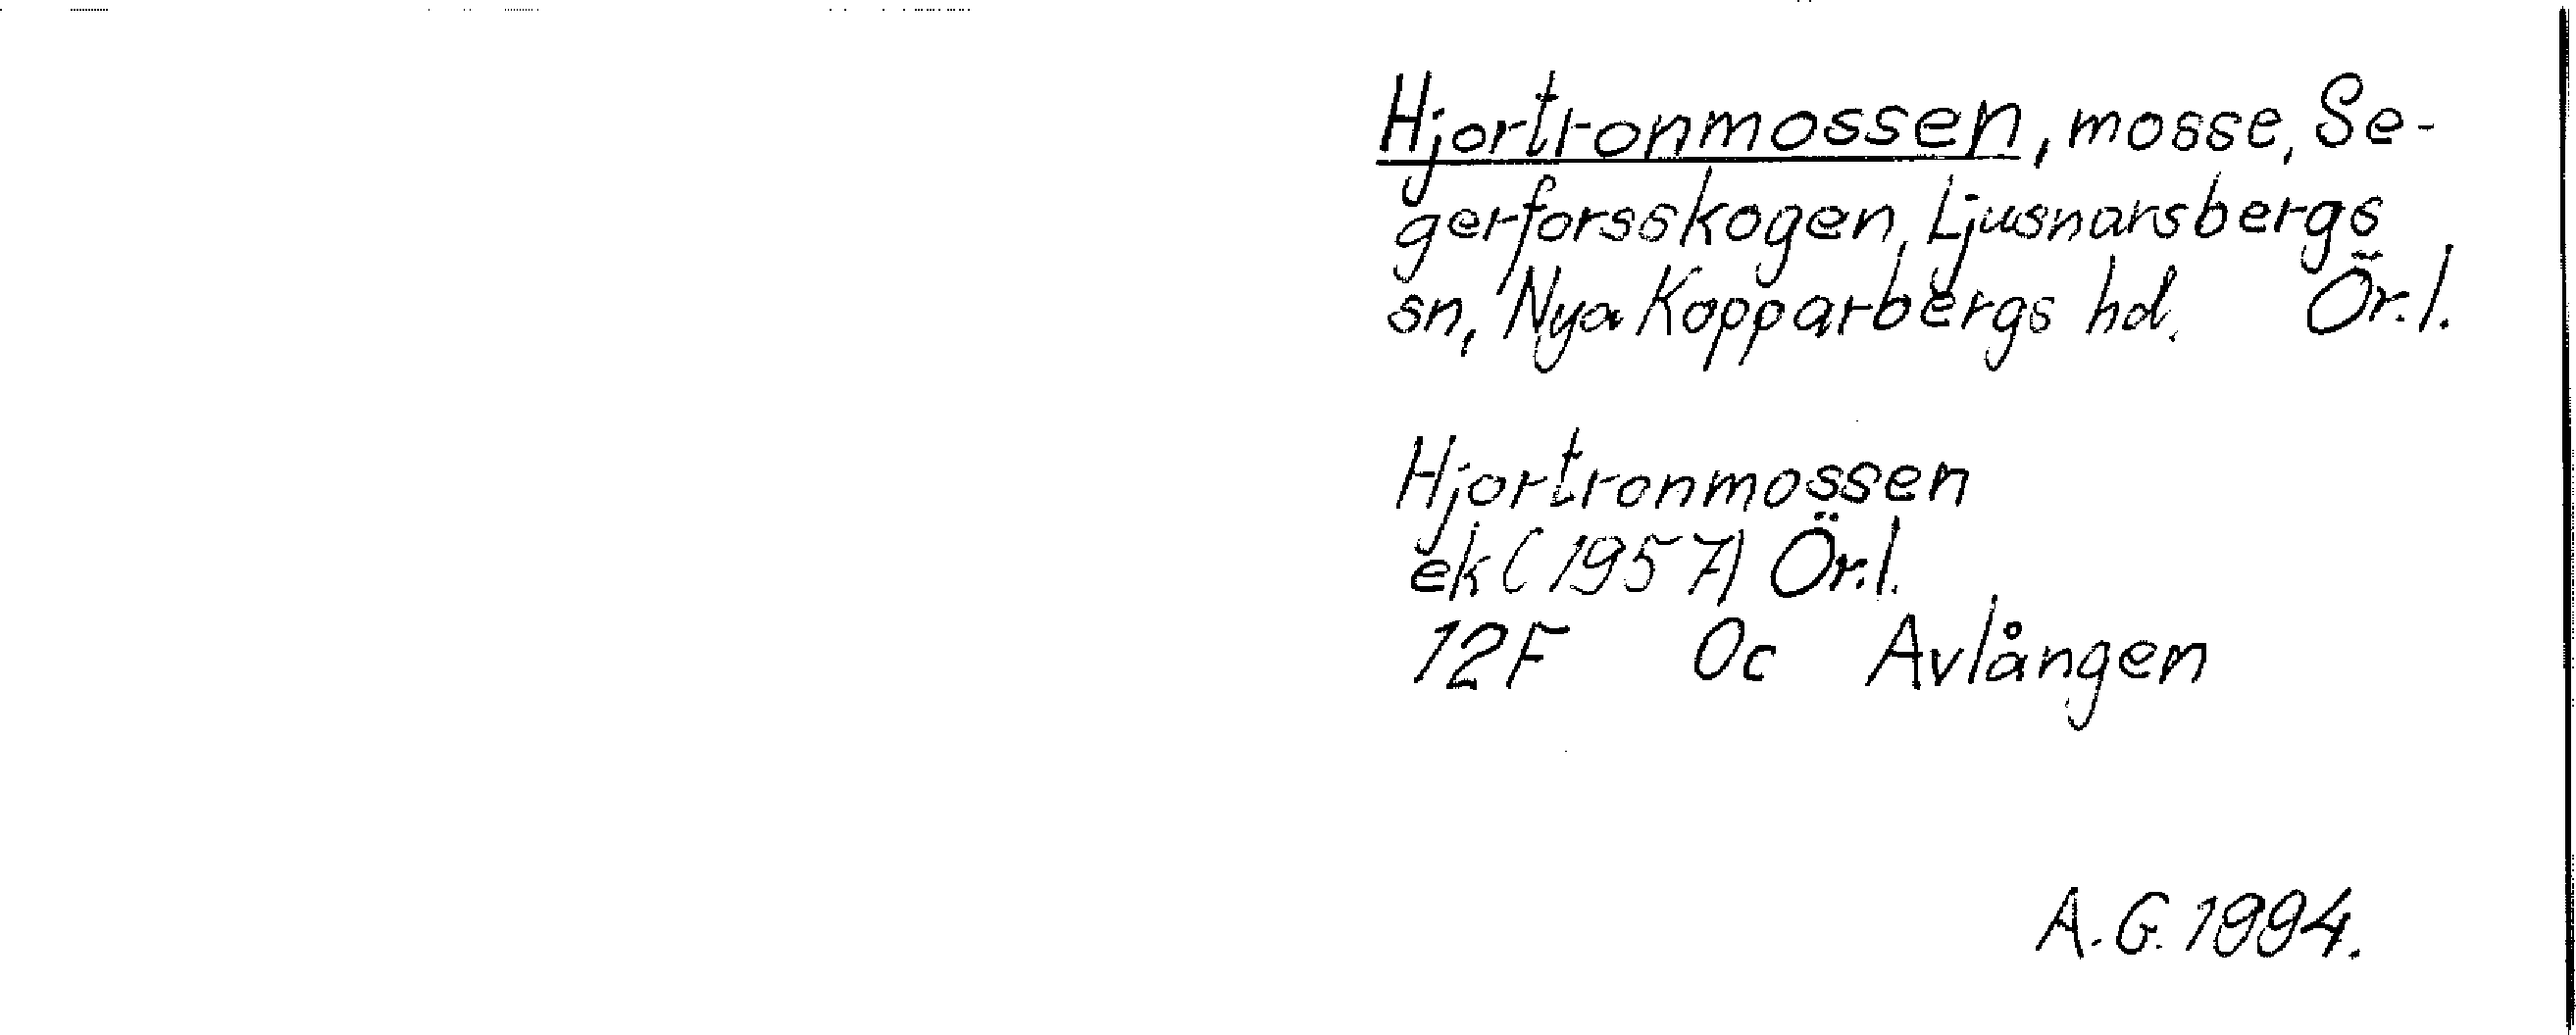 Hjortronmossen, mosse, Se-
gerforsskogen, Ljusnarsbergs
sn, Nya Kopparbergs hd. Ör.l.
Hjortronmossen
ek (1957) Ör.l.
12F 0c Avlången
A.G. 1994.